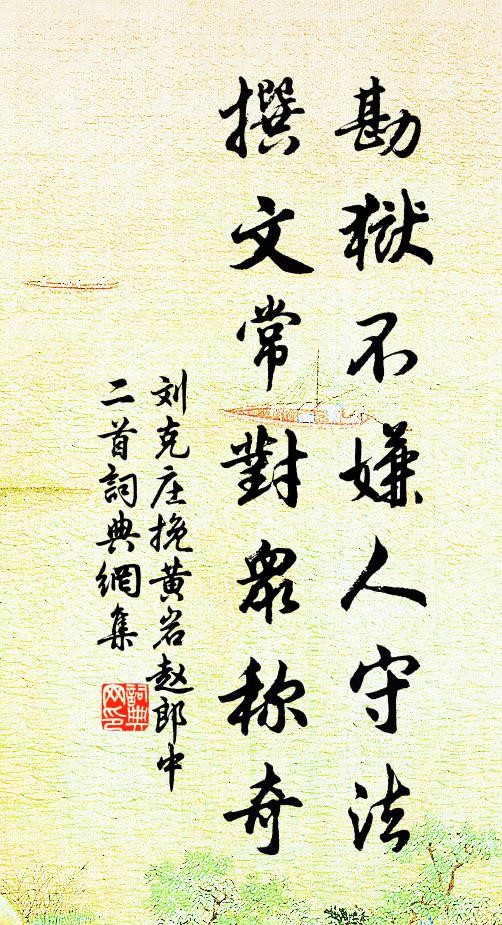 勘獄不嫌人守法
撰文常對衆称奇
刘克庄挽黄岩赵郎中
二首詞典網集
詞典网印